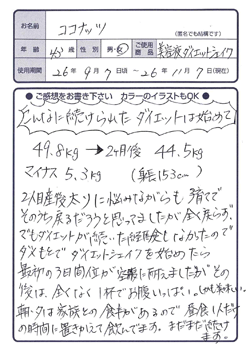 お名前 ココナッツ
(匿名でも結構です)
年齢 43才 性別 男・女 ご使用商品 美容液ダイエットシェイク
使用期間 26年9月7日頃 ~ 26年11月7日(現在)
●ご感想をお書き下さい カラーのイラストもOK●
こんなに続けられたダイエットは初めて
49.8kg → 2ヶ月後 44.5kg
マイナス 5.3kg (身長153cm)
2人目産後太りに悩みながらも育てで
そのうち戻るだろうと思ってましたが全く戻らず。
でもダイエットが続いた経験もなかったので
ダメもとでダイエットシェイクを始めたら
最初の3日間位が空腹に耐えましたがその
後は、全くなく1杯でお腹いっぱい。(しかも美味しい)
朝・夕は家族との食事があるので昼食1人だけ
の時間に置きかえて飲んでます。まだまだ続け
ます。